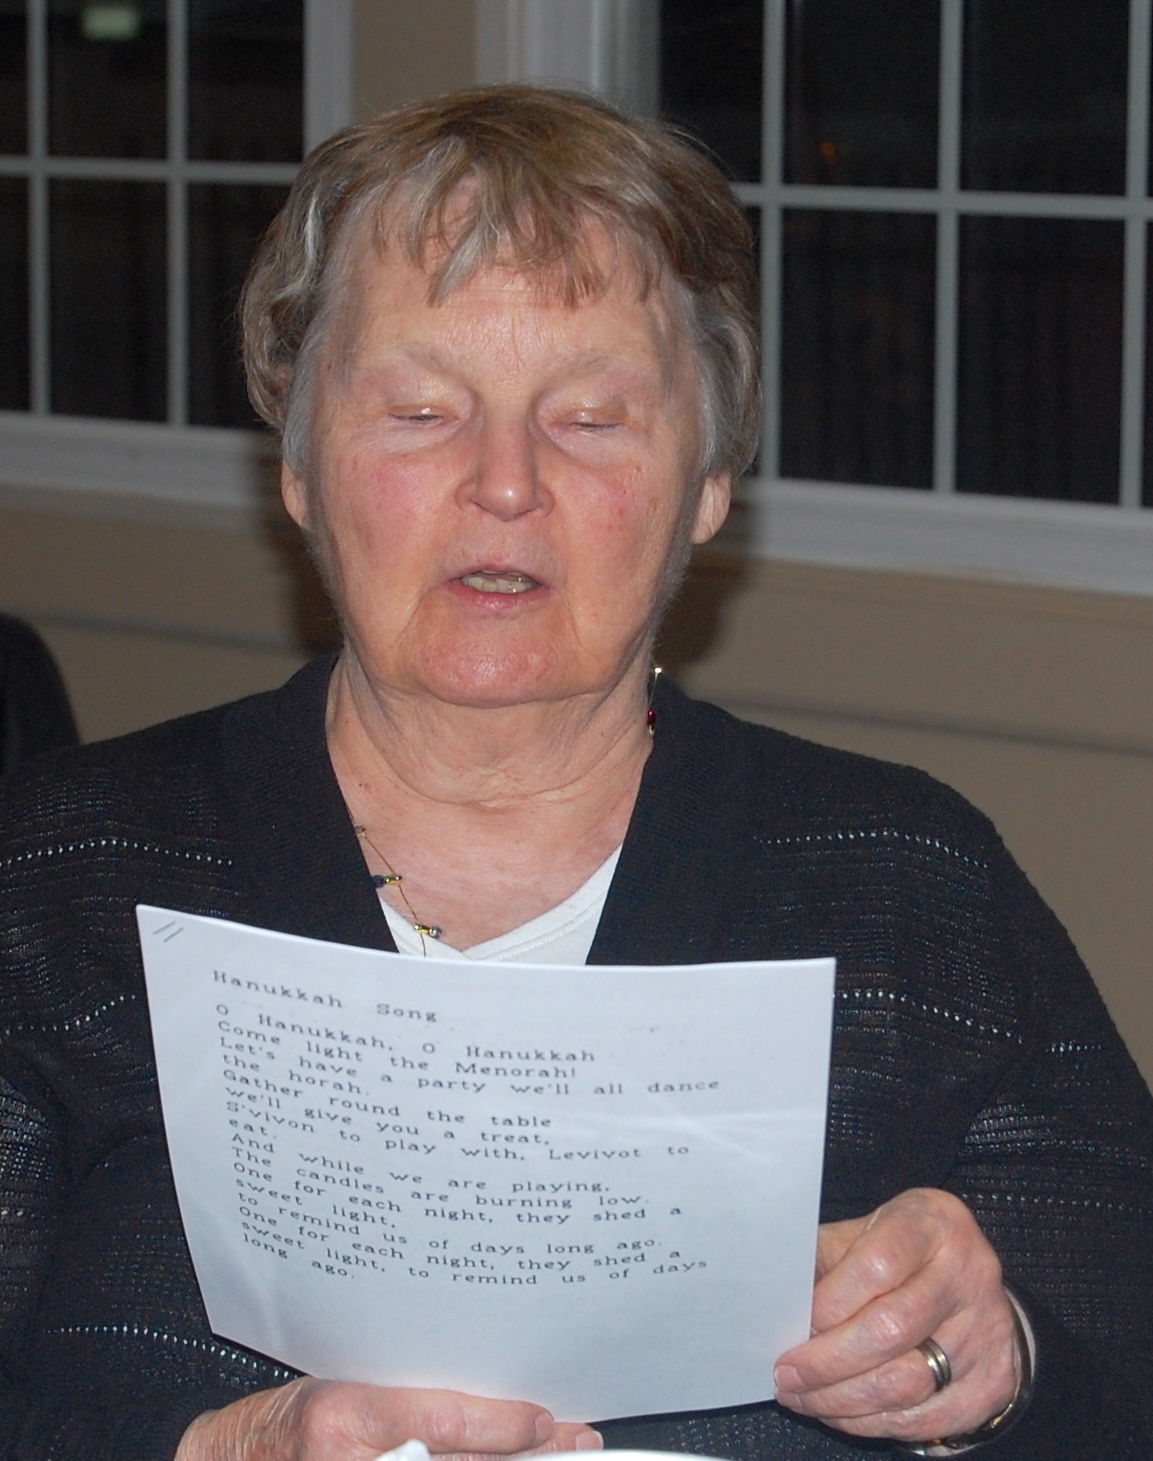 Hanukkah Song
O Hanukkah, O Hanukkah
Come light the Menorah!
Let's have a party we'll all dance
the horah.
Gather round the table
we'll give you a treat,
S'vivon to play with, Levivot to
eat.
And while we are playing,
The candles are burning low.
One for each night, they shed a
sweet light,
to remind us of days long ago.
One for each night, they shed a
sweet light, to remind us of days
long ago.